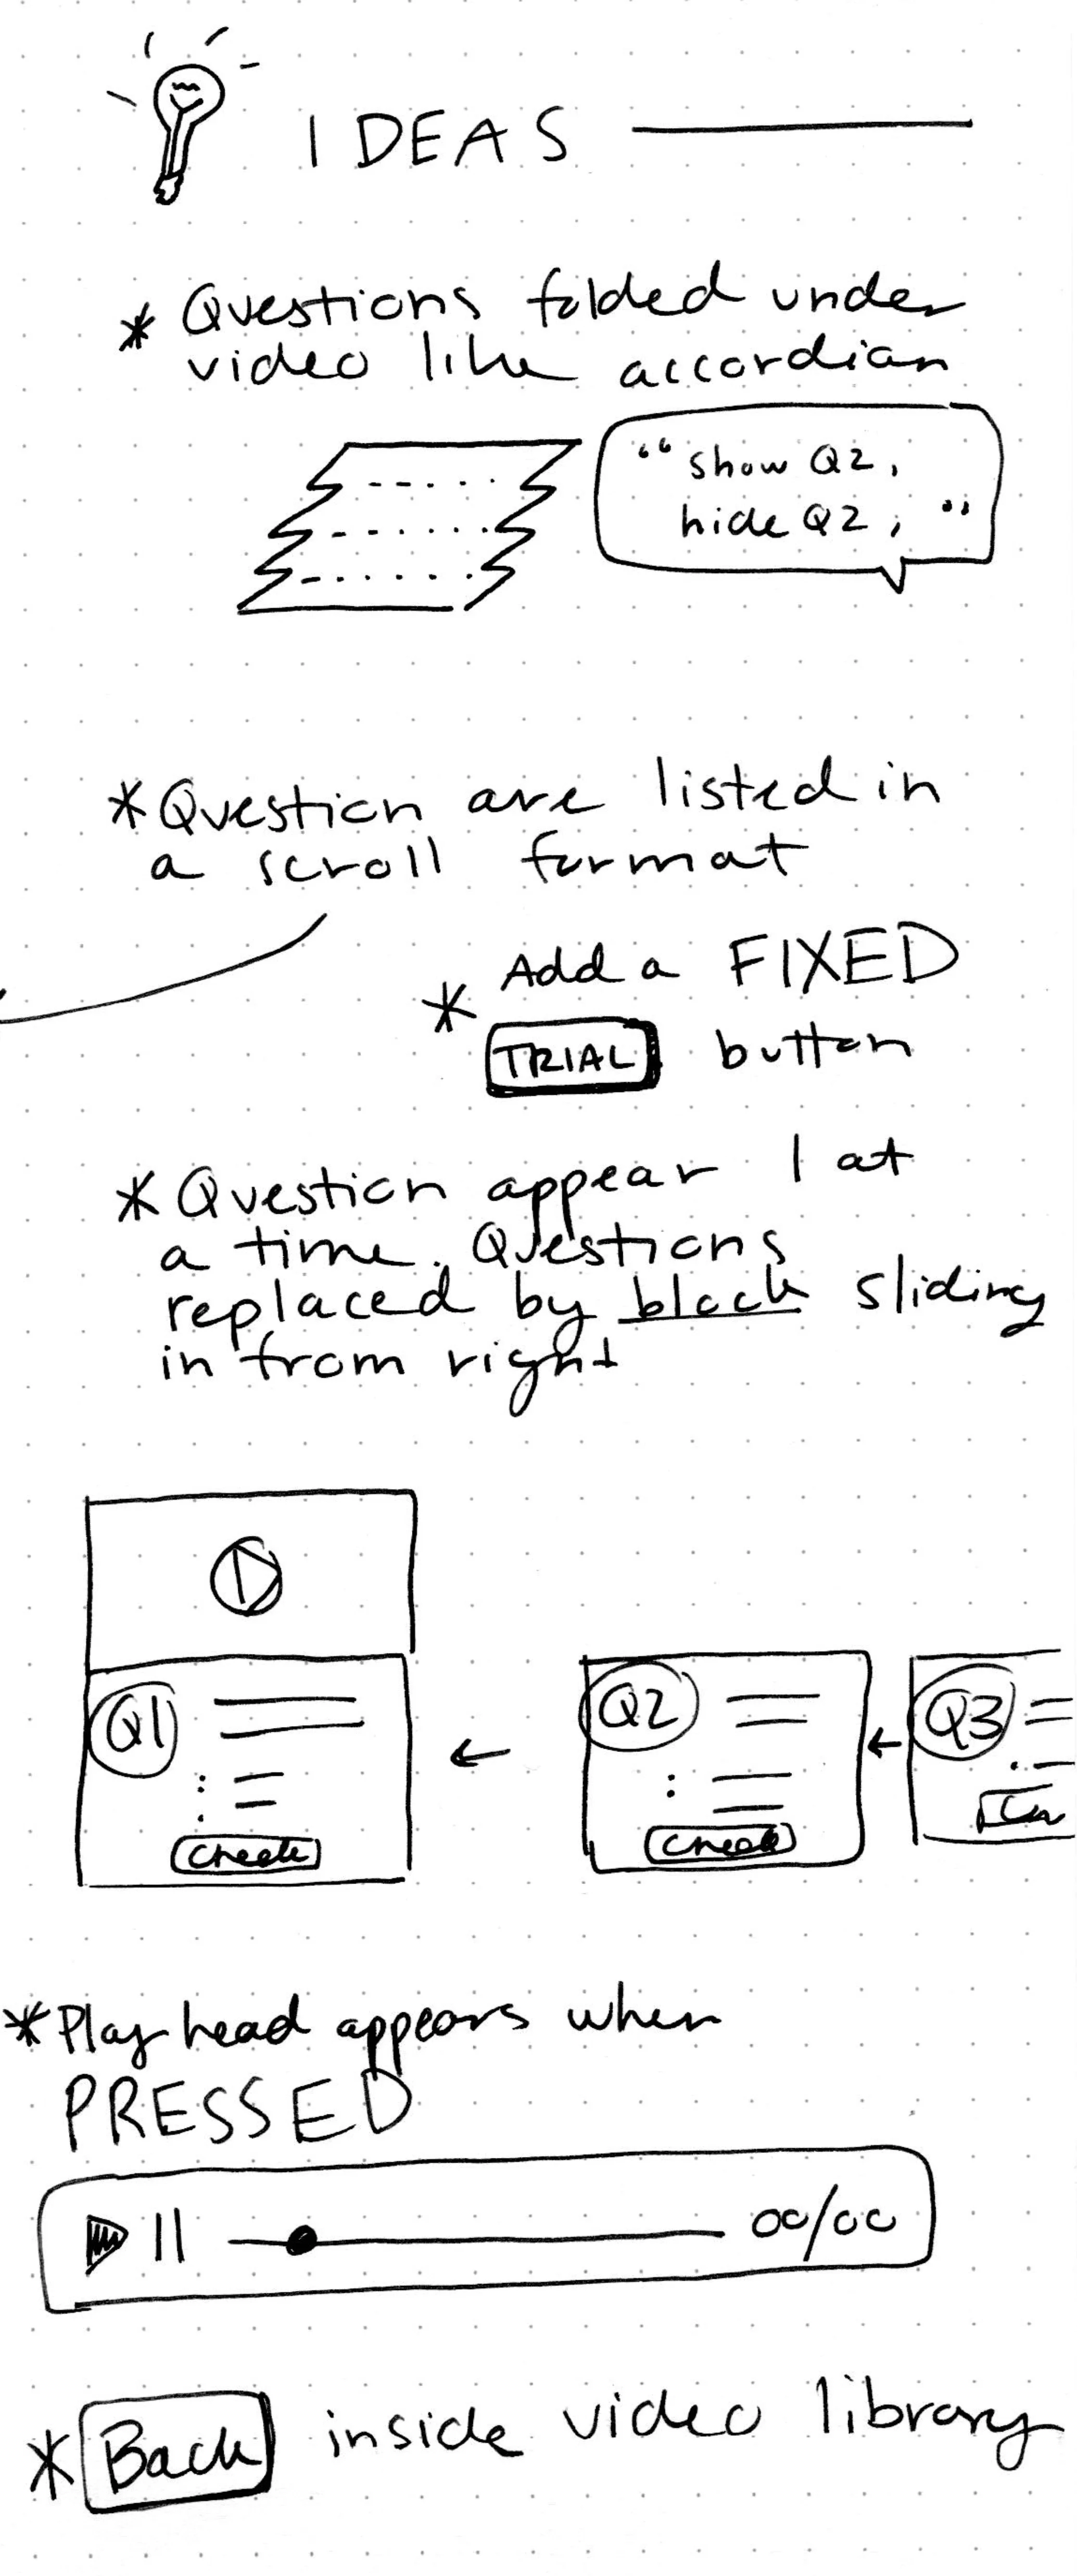 IDEAS
* Questions folded under
video like accordian
“ show Q2,
hide Q2, ”
* Question are listed in
a scroll format
* Add a FIXED
TRIAL button
* Question appear 1 at
a time. Questions
replaced by block sliding
in from right
Q1
Check
Q2
Check
Q3
* Play head appears when
PRESSED
00/00
* Back inside video library